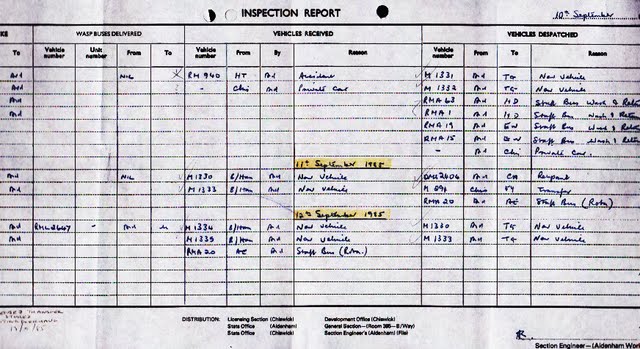 INSPECTION REPORT
10th September
WASP BUSES DELIVERED VEHICLES RECEIVED VEHICLES DESPATCHED
To Vehicle number Unit number From To Vehicle number From By Reason Vehicle number From To Reason
Ad NIL RM 940 HT Ad Accident M 1331 Ad TG New Vehicle
Ad - Chis Ad Private Car M 1332 Ad TG New Vehicle
Ad RMA 63 Ad HD Staff Bus Wash &
Ad RMA 1 Ad HD Staff Bus Wash &
RMA 19 Ad Staff Bus Wash &
RMA 15 Ad Staff Bus Wash &
- Ad Chis Private Car.
11th September 1985
Ad NIL M1330 B/Hem Ad New Vehicle 2404 Ad
Ad M1333 B/Hem Ad New Vehicle M Chis Transfer
RMA 20 Ad AE Staff Bus (Rotn)
12th September 1985
Ad - Ad M 1334 B/Hem Ad New Vehicle M1330 Ad TG New Vehicle
Ad M 1335 B/Hem Ad New Vehicle M 1333 Ad TG New Vehicle
RMA 20 AE Ad Staff Bus (Rotn.)
DISTRIBUTION: Licensing Section (Chiswick) Development Office (Chiswick)
Stats Office (Aldenham) General Section—(Room 395—B/Way)
Stats Office (Chiswick) Section Engineer's (Aldenham) (File)
Section Engineer—(Aldenham